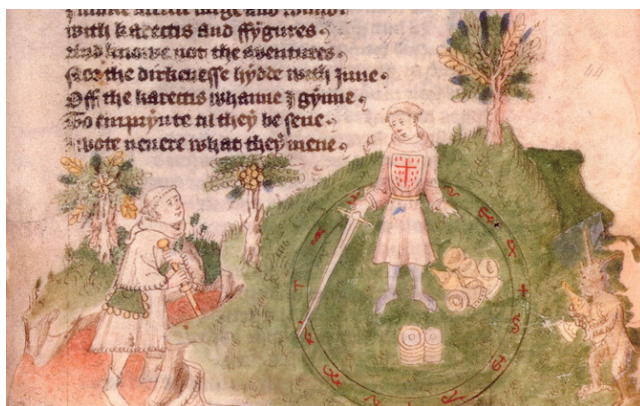 large and
with karectis and ffygures
And knowe not the aventures
ffor the dirkenesse hydde with Inne
Off the karectis whanne I gynne
To emprynte til they be sene
I wote nevere what they mene
44